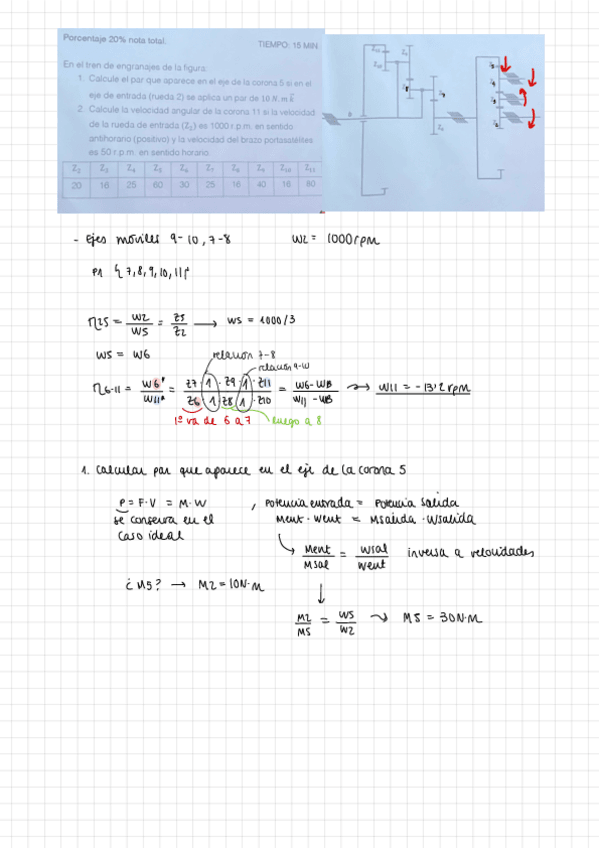 Porcentaje 20% nota total.
TIEMPO: 15 MIN
En el tren de engranajes de la figura:
1. Calcule el par que aparece en el eje de la corona 5 si en el
eje de entrada (rueda 2) se aplica un par de 10 N.m k
2. Calcule la velocidad angular de la corona 11 si la velocidad
de la rueda de entrada (Z2) es 1000 r.p.m. en sentido
antihorario (positivo) y la velocidad del brazo portasatélites
es 50 r.p.m. en sentido horario.
Z2 Z3 Z4 Z5 Z6 Z7 Z8 Z9 Z10 Z11
20 16 25 60 30 25 16 40 16 80
- Ejes móviles 9-10, 7-8 W2 = 1000rpm
PA {7,8,9,10,11}
η25 = W2/W5 = Z5/Z2 → W5 = 1000/3
W5 = W6
relación 7-8
relación 9-10
η6-11 = W6'/W11' = Z7·1·Z9·1·Z11/Z6·1·Z8·1·Z10 = W6-WB/W11-WB → W11 = -13,2 rpm
1º va de 6 a 7 luego a 8
1. Calcular par que aparece en el eje de la corona 5
P = F·V = M·W , Potencia entrada = Potencia Salida
se conserva en el Ment·Went = Msalida·Wsalida
caso ideal
Ment/Msal = Wsal/Went inversa a velocidades
¿M5? → M2 = 10N·m
M2/M5 = W5/W2 → M5 = 30N·M